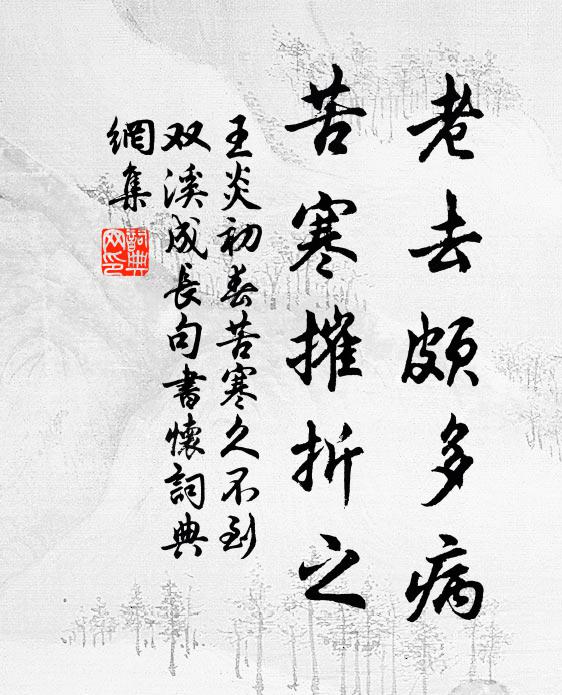 老去頗多病
苦寒摧折之
王炎初春苦寒久不到
双溪成長句書懷詞典
網集
詞典
网印